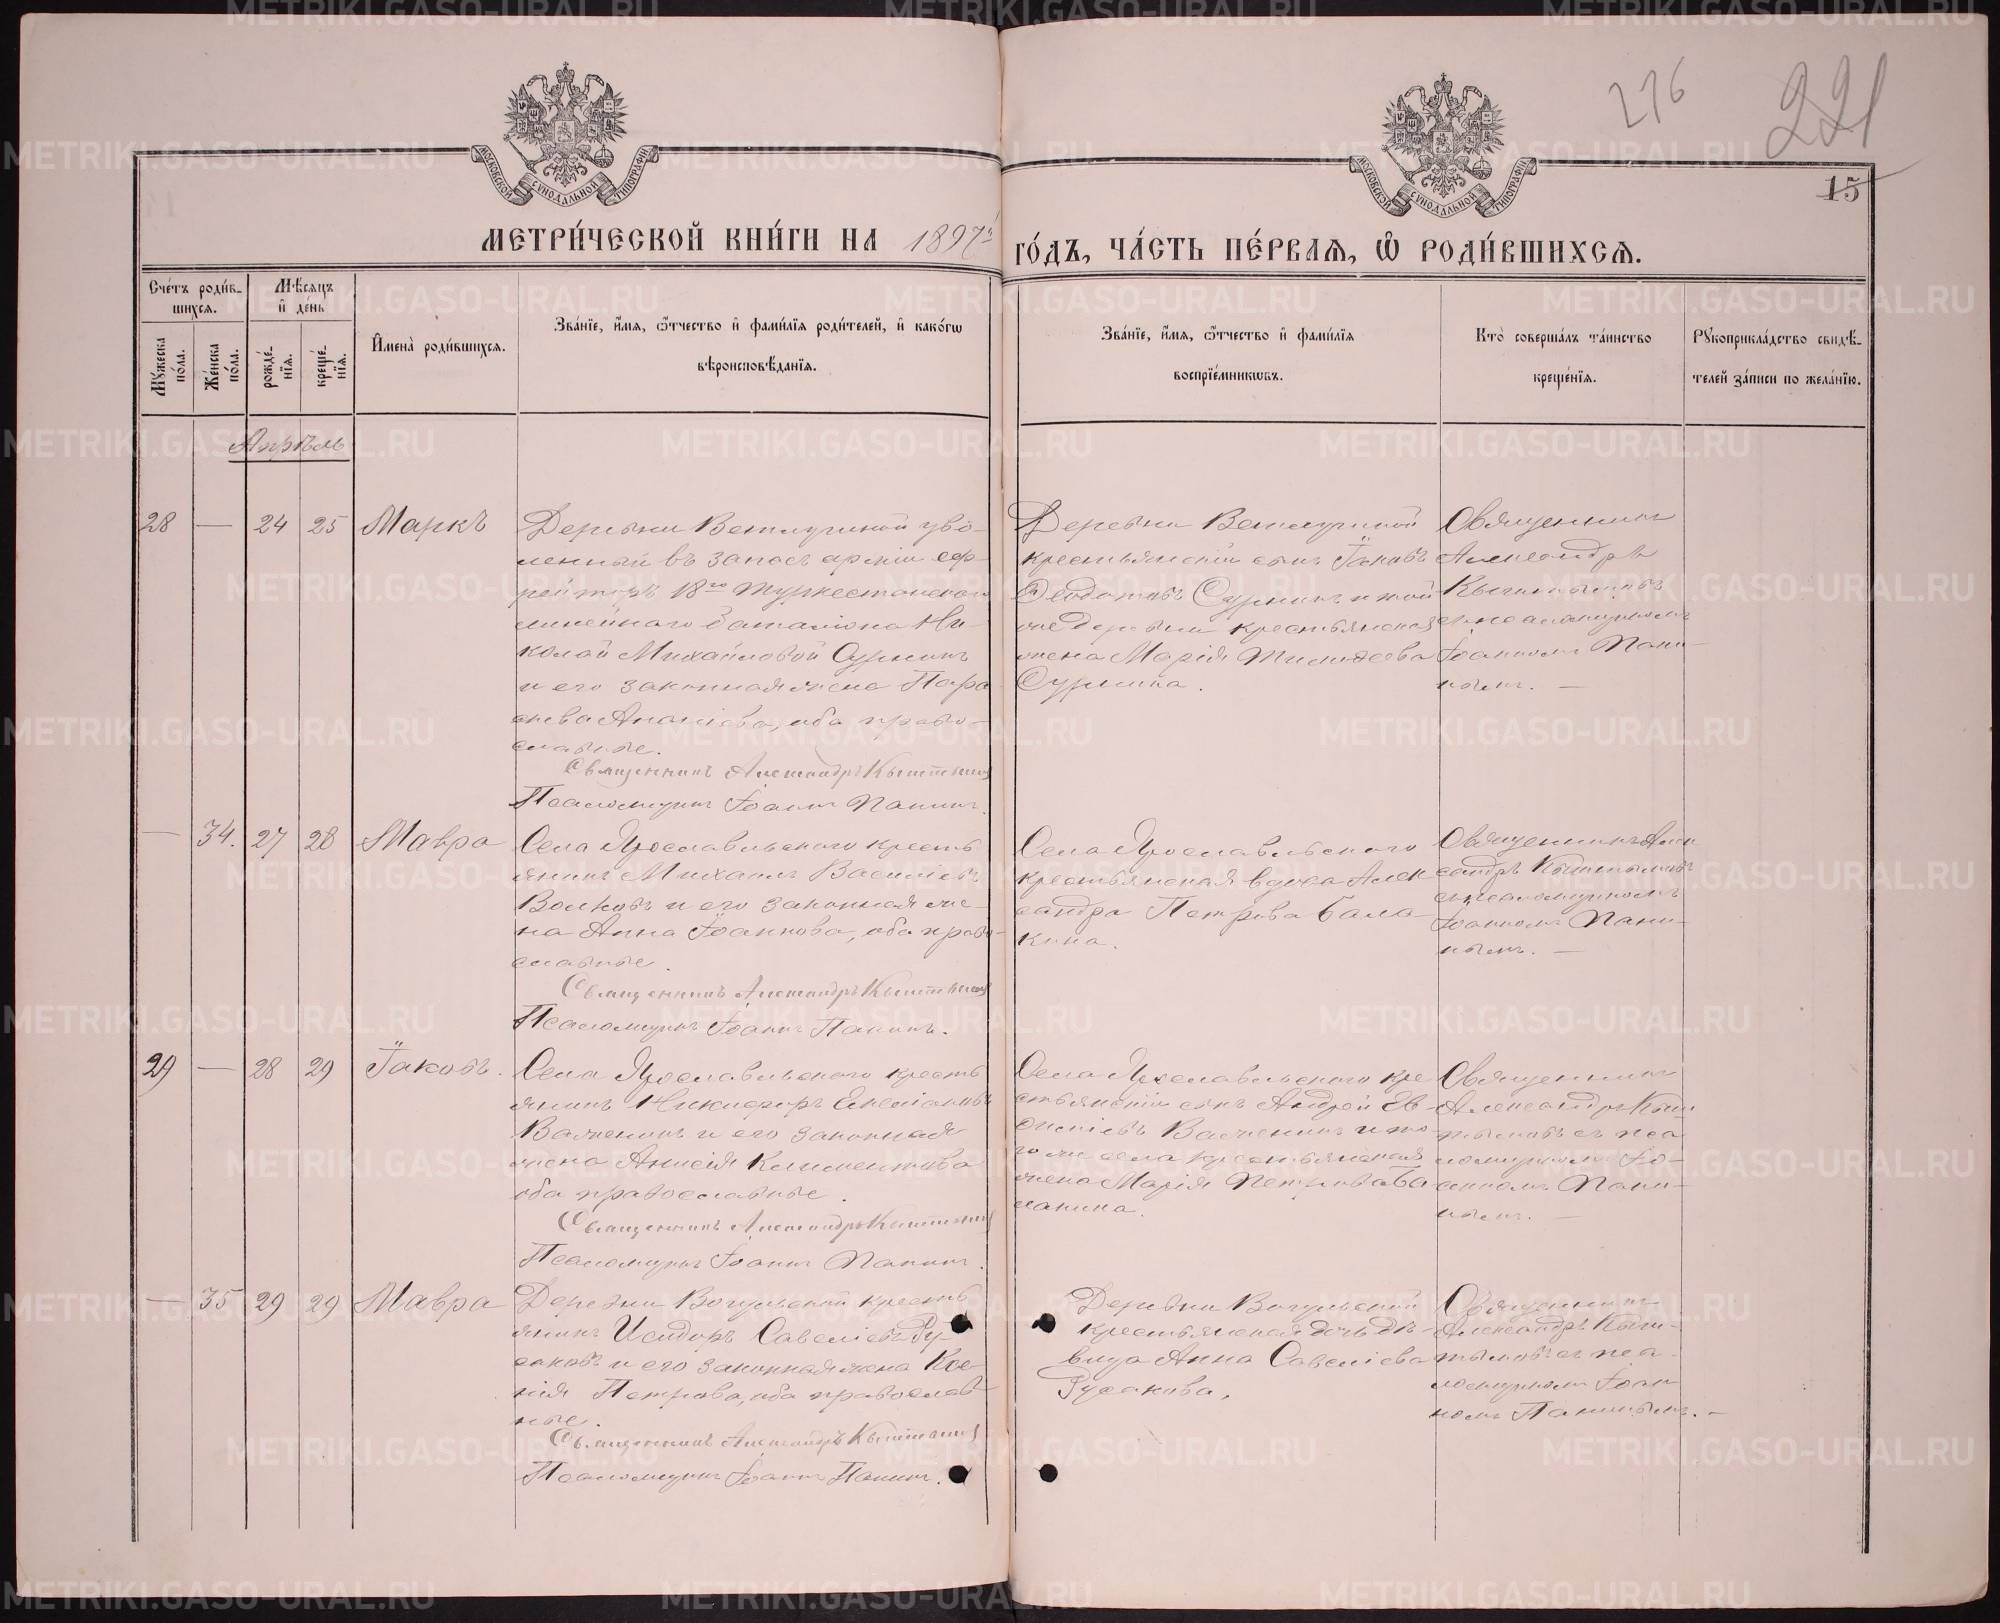 276
221
15
МОСКОВСКОЙ СУНОДАЛЬНОЙ ТИПОГРАФІИ
МОСКОВСКОЙ СУНОДАЛЬНОЙ ТИПОГРАФІИ
МЕТРИ́ЧЕСКОЙ КНИ́ГИ НА 1897й
ГО́ДЪ, ЧА́СТЬ ПЕ́РВАѦ, Ѡ҆ РОДИ́ВШИХСѦ.
Сче́тъ роди́в-
шихсѧ.
Мꙋ́жеска по́ла.
Же́нска по́ла.
Мѣ́сѧцъ
и҆ де́нь
рожде́-
нїѧ.
креще́-
нїѧ.
И҆мена̀ роди́вшихсѧ.
Зва́нїе, и҆́мѧ, ѻ҆́тчество и҆ фами́лїѧ роди́телей, и҆ како́гѡ
вѣроисповѣ́данїѧ.
Зва́нїе, и҆́мѧ, ѻ҆́тчество и҆ фами́лїѧ
воспрїе́мникѡвъ.
Кто̀ соверша́лъ та́инство
креще́нїѧ.
Рꙋкоприкла́дство свидѣ́-
телей за́писи по жела́нїю.
Апрѣль
28 — 24 25 Маркъ
Деревни Ветлугиной уво-
ленный въ запасъ арміи еф-
рейторъ 18го Туркестанскаго
линейнаго баталіона Ни-
колай Михайловъ Сурнинъ
и его законная жена Пара-
скева Ананіева, оба право-
славные.
Священникъ Александръ Кыштымов
Псаломщикъ Іоаннъ Панинъ.
Деревни Ветлугиной
крестьянскій сынъ Іаковъ
Ѳеодотовъ Сурнинъ и той
же деревни крестьянская
жена Марія Тимоѳеева
Сурнина.
Священникъ
Александръ
Кыштымовъ
съ псаломщикомъ
Іоанномъ Пани-
нымъ. —
— 34. 27 28 Мавра
Села Ярославльскаго кресть
янинъ Михаилъ Василіевъ
Волковъ и его законная же-
на Анна Іоаннова, оба право-
славные.
Священникъ Александръ Кыштымов
Псаломщикъ Іоаннъ Панинъ.
Села Ярославльскаго
крестьянская вдова Алек
сандра Петрова Бала-
кина.
Священникъ Алек
сандръ Кыштымовъ
съ псаломщикомъ
Іоанномъ Пани-
нымъ. —
29 — 28 29 Іаковъ.
Села Ярославльскаго кресть
янинъ Никифоръ
и его законная
жена Анисія Климентова
оба православные.
Священникъ Александръ Кыштымов
Псаломщикъ Іоаннъ Панинъ.
Села Ярославльскаго кре-
стьянскій сынъ Андрей Ев-
и то-
го же села крестьянская
жена Марія Петрова Ба
лакина.
Священникъ
Александръ Кыш
тымовъ съ пса
ломщикомъ Іо-
анномъ Пани-
нымъ. —
— 35 29 29 Мавра
Деревни Вогульской кресть
янинъ Исидоръ Савеліевъ Ру-
саковъ и его законная жена Ксе-
нія Петрова, оба православ-
ные.
Священникъ Александръ Кыштымов
Псаломщикъ Іоаннъ Панинъ.
Деревни Вогульской
крестьянская дочь дѣ-
вица Анна Савеліева
Русакова.
Священникъ
Александръ Кыш-
тымовъ съ пса-
ломщикомъ Іоан
номъ Панинымъ. —
METRIKI.GASO-URAL.RU